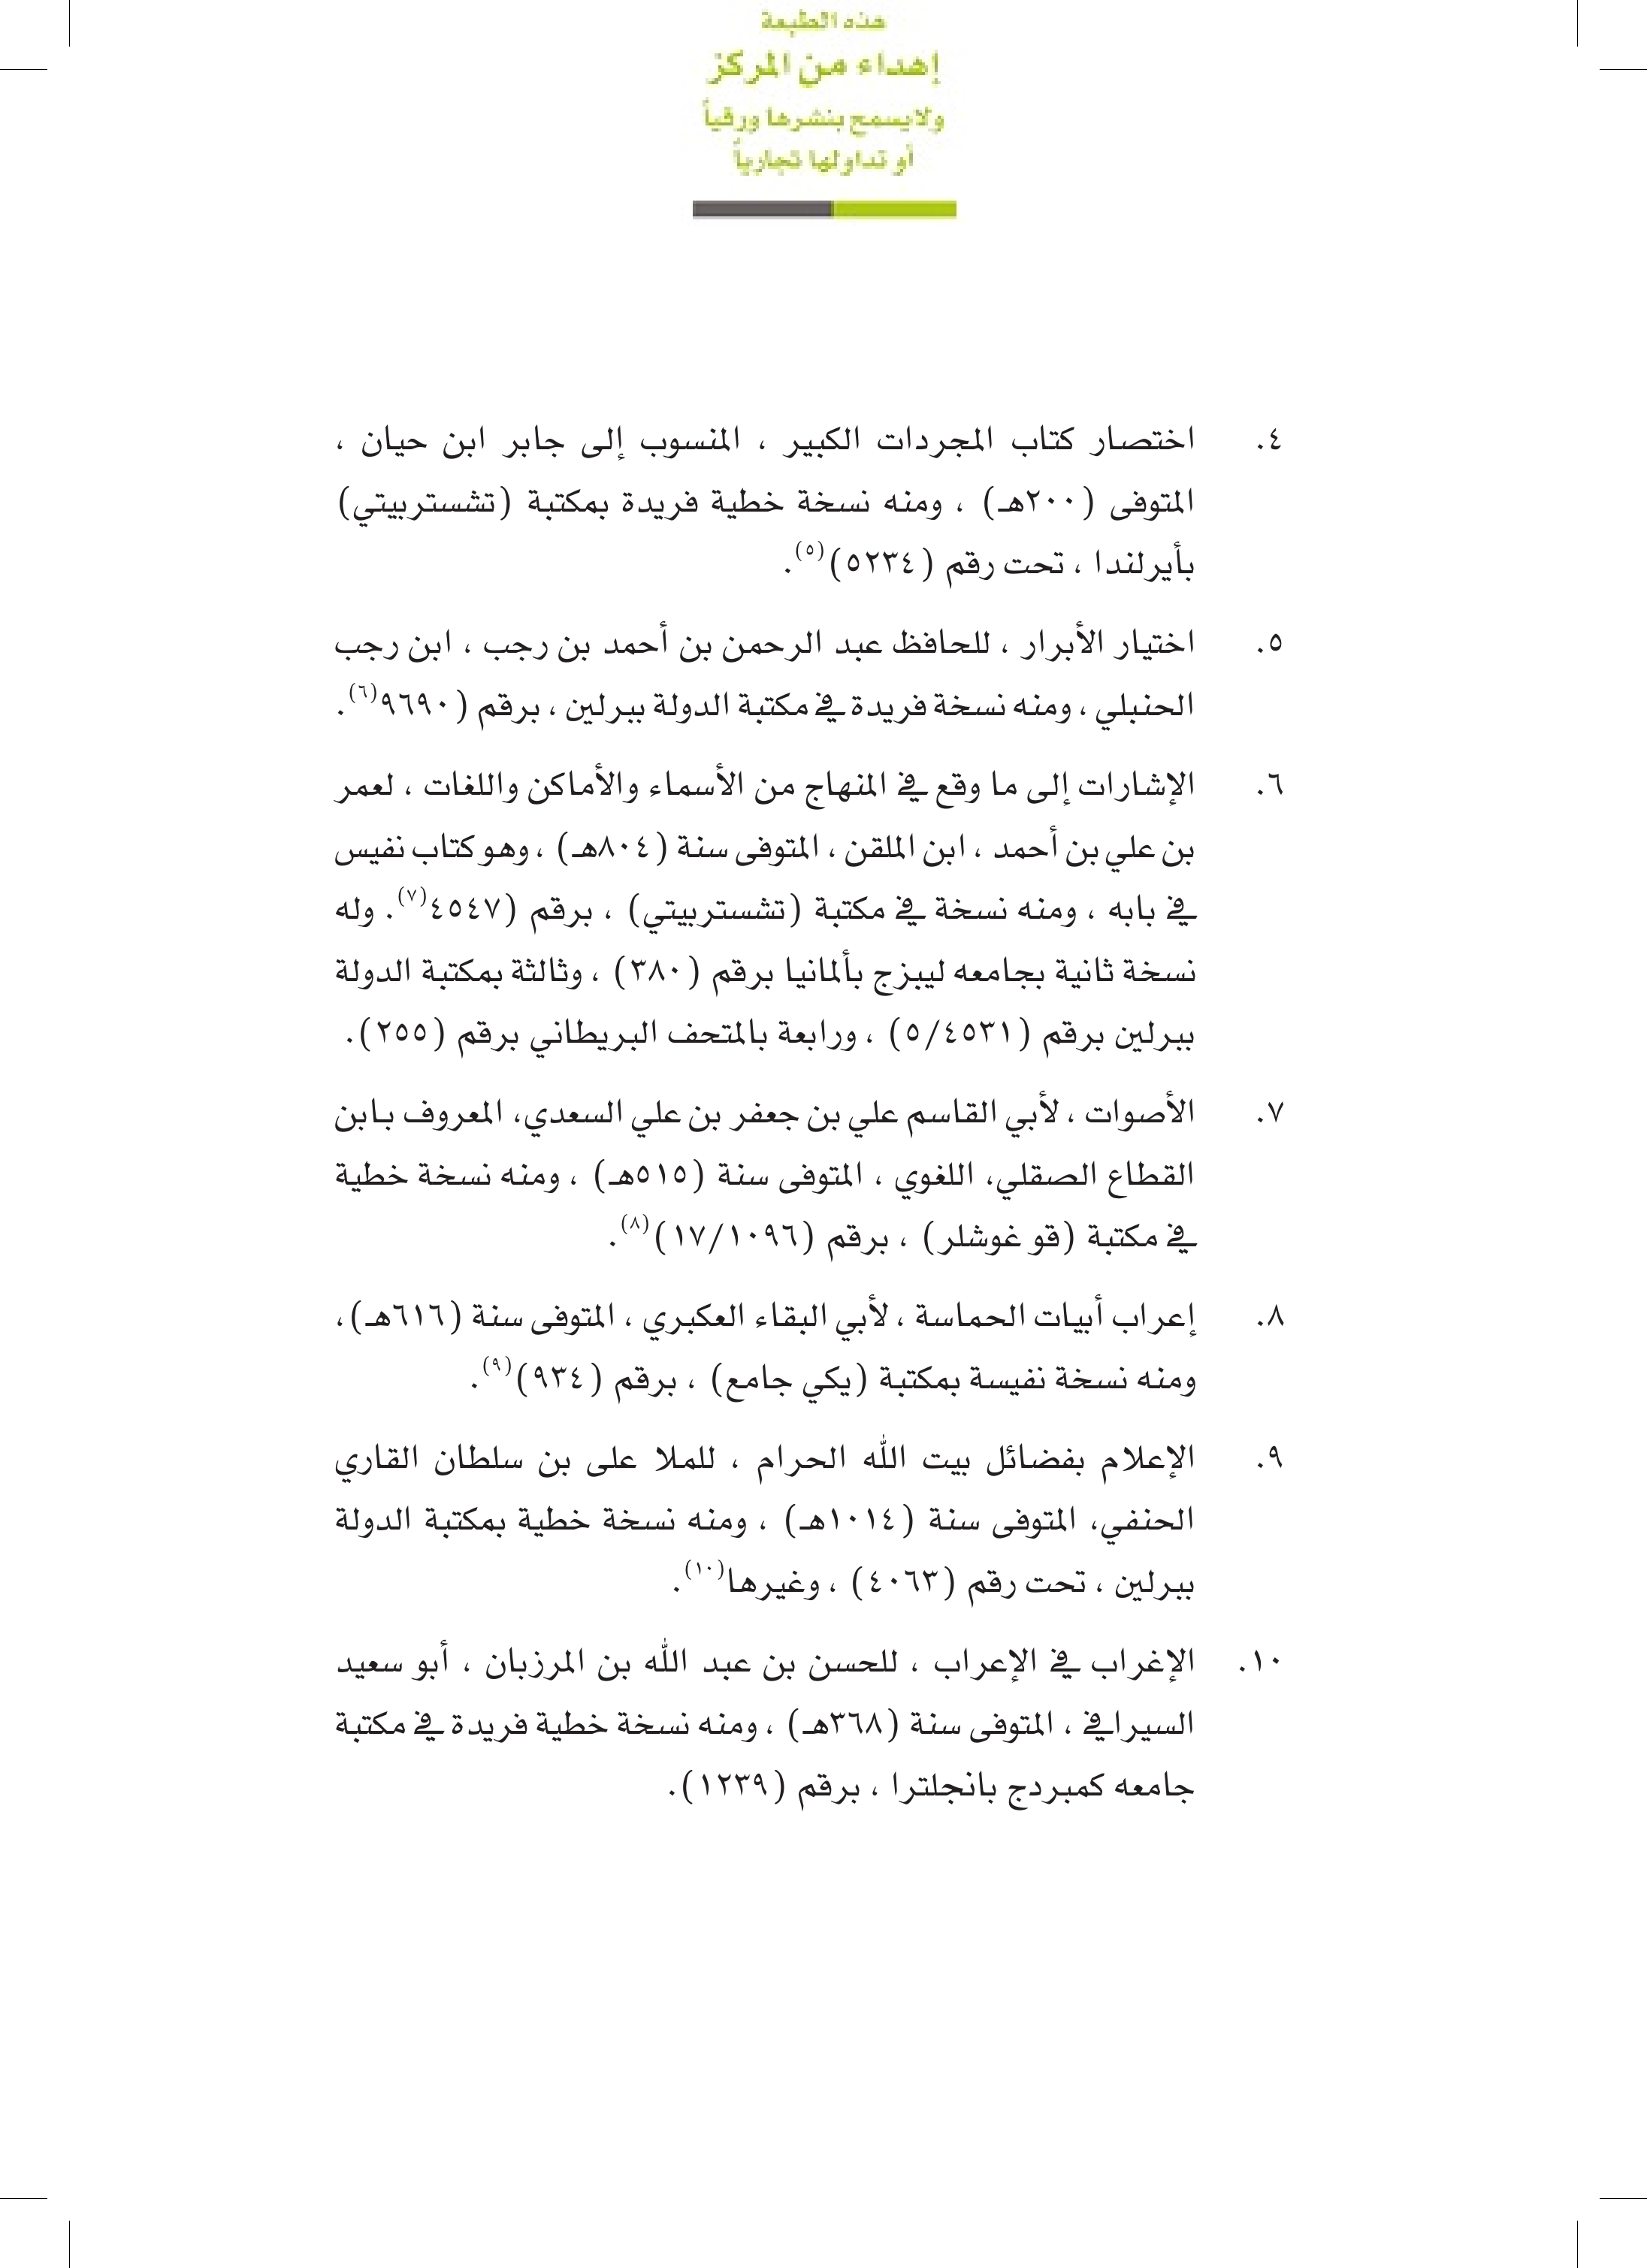 هذه الطبعة
إهداء من المركز
ولايسمح بنشرها ورقياً
أو تداولها تجارياً
٤. اختصار كتاب المجردات الكبير ، المنسوب إلى جابر ابن حيان ،
المتوفى (٢٠٠هـ) ، ومنه نسخة خطية فريدة بمكتبة (تشستربيتي)
بأيرلندا ، تحت رقم (٥٢٣٤)(٥).
٥. اختيار الأبرار ، للحافظ عبد الرحمن بن أحمد بن رجب ، ابن رجب
الحنبلي ، ومنه نسخة فريدة في مكتبة الدولة ببرلين ، برقم (٩٦٩٠(٦).
٦. الإشارات إلى ما وقع في المنهاج من الأسماء والأماكن واللغات ، لعمر
بن علي بن أحمد ، ابن الملقن ، المتوفى سنة (٨٠٤هـ) ، وهو كتاب نفيس
في بابه ، ومنه نسخة في مكتبة (تشستربيتي) ، برقم (٤٥٤٧(٧). وله
نسخة ثانية بجامعه ليبزج بألمانيا برقم (٣٨٠) ، وثالثة بمكتبة الدولة
ببرلين برقم (٥/٤٥٣١) ، ورابعة بالمتحف البريطاني برقم (٢٥٥).
٧. الأصوات ، لأبي القاسم علي بن جعفر بن علي السعدي، المعروف بـابن
القطاع الصقلي، اللغوي ، المتوفى سنة (٥١٥هـ) ، ومنه نسخة خطية
في مكتبة (قو غوشلر) ، برقم (١٧/١٠٩٦)(٨).
٨. إعراب أبيات الحماسة ، لأبي البقاء العكبري ، المتوفى سنة (٦١٦هـ)،
ومنه نسخة نفيسة بمكتبة (يكي جامع) ، برقم (٩٣٤)(٩).
٩. الإعلام بفضائل بيت الله الحرام ، للملا على بن سلطان القاري
الحنفي، المتوفى سنة (١٠١٤هـ) ، ومنه نسخة خطية بمكتبة الدولة
ببرلين ، تحت رقم (٤٠٦٣) ، وغيرها(١٠).
١٠. الإغراب في الإعراب ، للحسن بن عبد الله بن المرزبان ، أبو سعيد
السيرافي ، المتوفى سنة (٣٦٨هـ) ، ومنه نسخة خطية فريدة في مكتبة
جامعه كمبردج بانجلترا ، برقم (١٢٣٩).